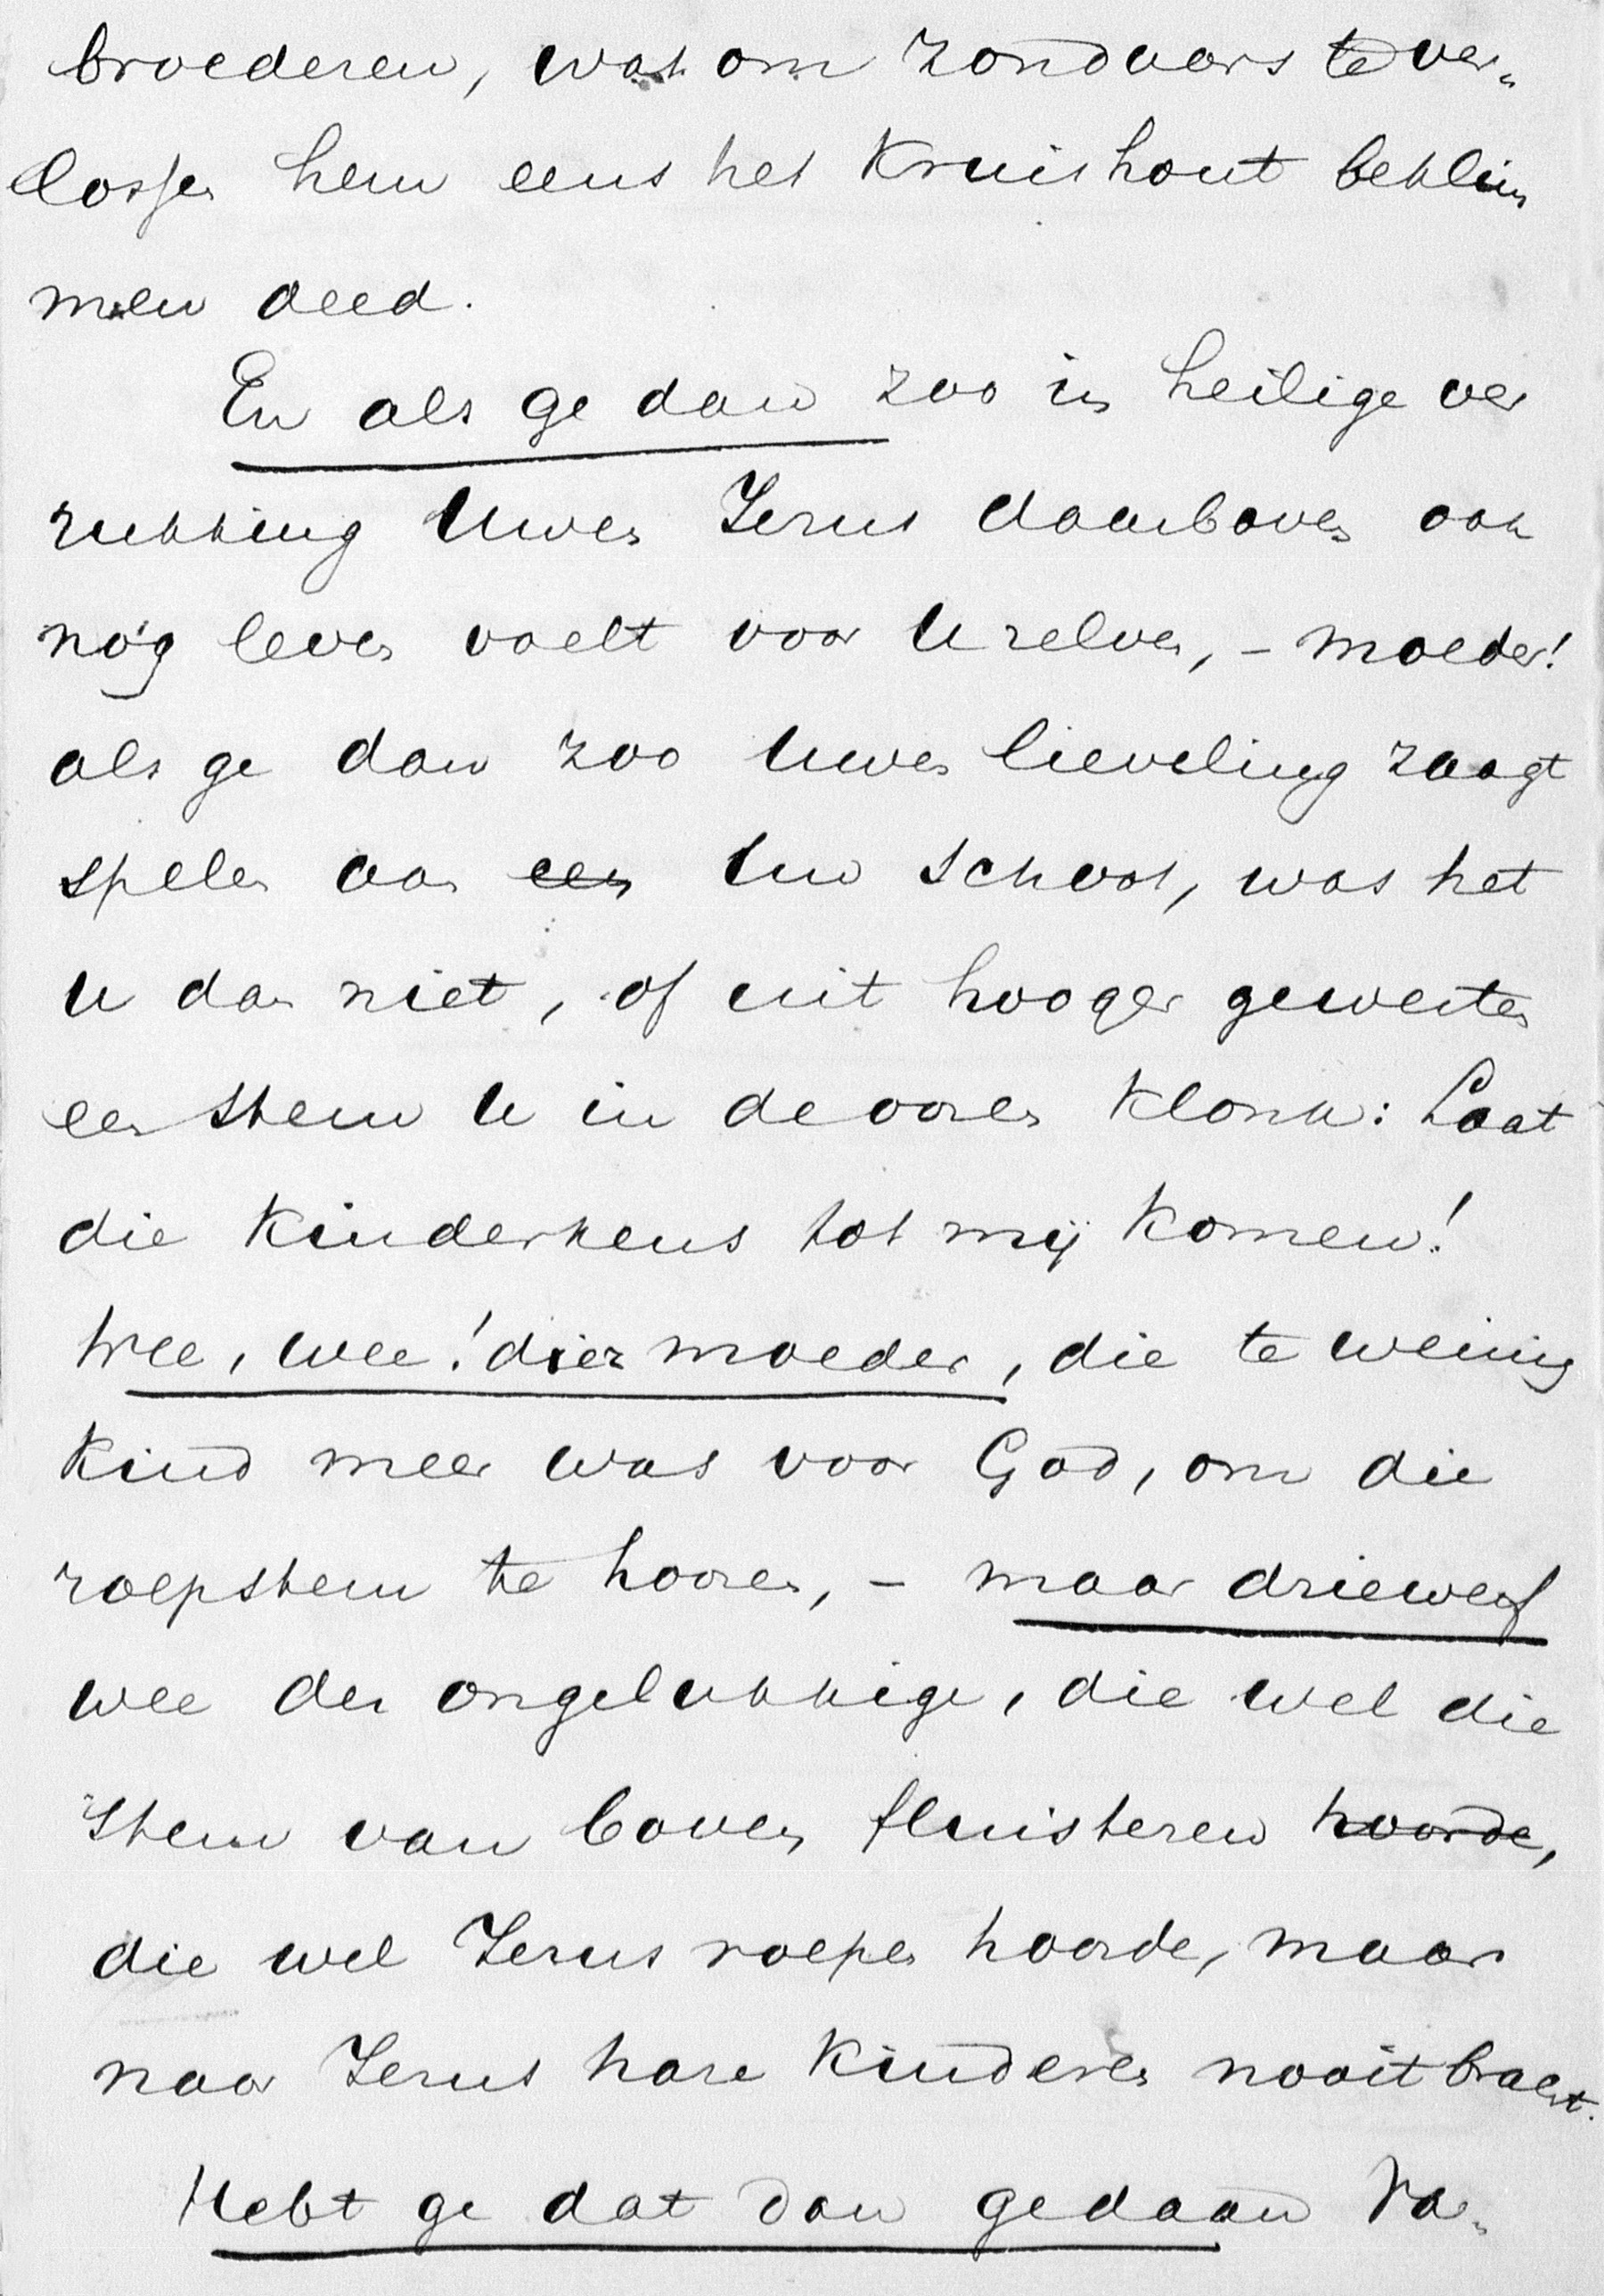 broederen, wat om zondaars te ver„
lossen hem eens het Kruishout beklim
men deed.
En als ge dan zoo in heilige ver
rukking Uwen Jezus daarboven ook
nóg leven voelt voor U zelven, – moeder!
als ge dan zoo Uwen lieveling zaagt
spelen aan een Uw schoot, was het
U dan niet, of uit hooger gewesten
een stem U in de ooren klonk: Laat
die Kinderkens tot mij komen!
Wee, wee! dier moeder, die te weinig
Kind meer was voor God, om die
roepstem te hooren, – maar driewerf
wee der ongelukkige, die wel die
stem van boven fluisteren hoorde,
die wel Jezus roepen hoorde, maar
naar Jezus hare Kinderen nooit bracht.
Hebt ge dat dan gedaan Va„